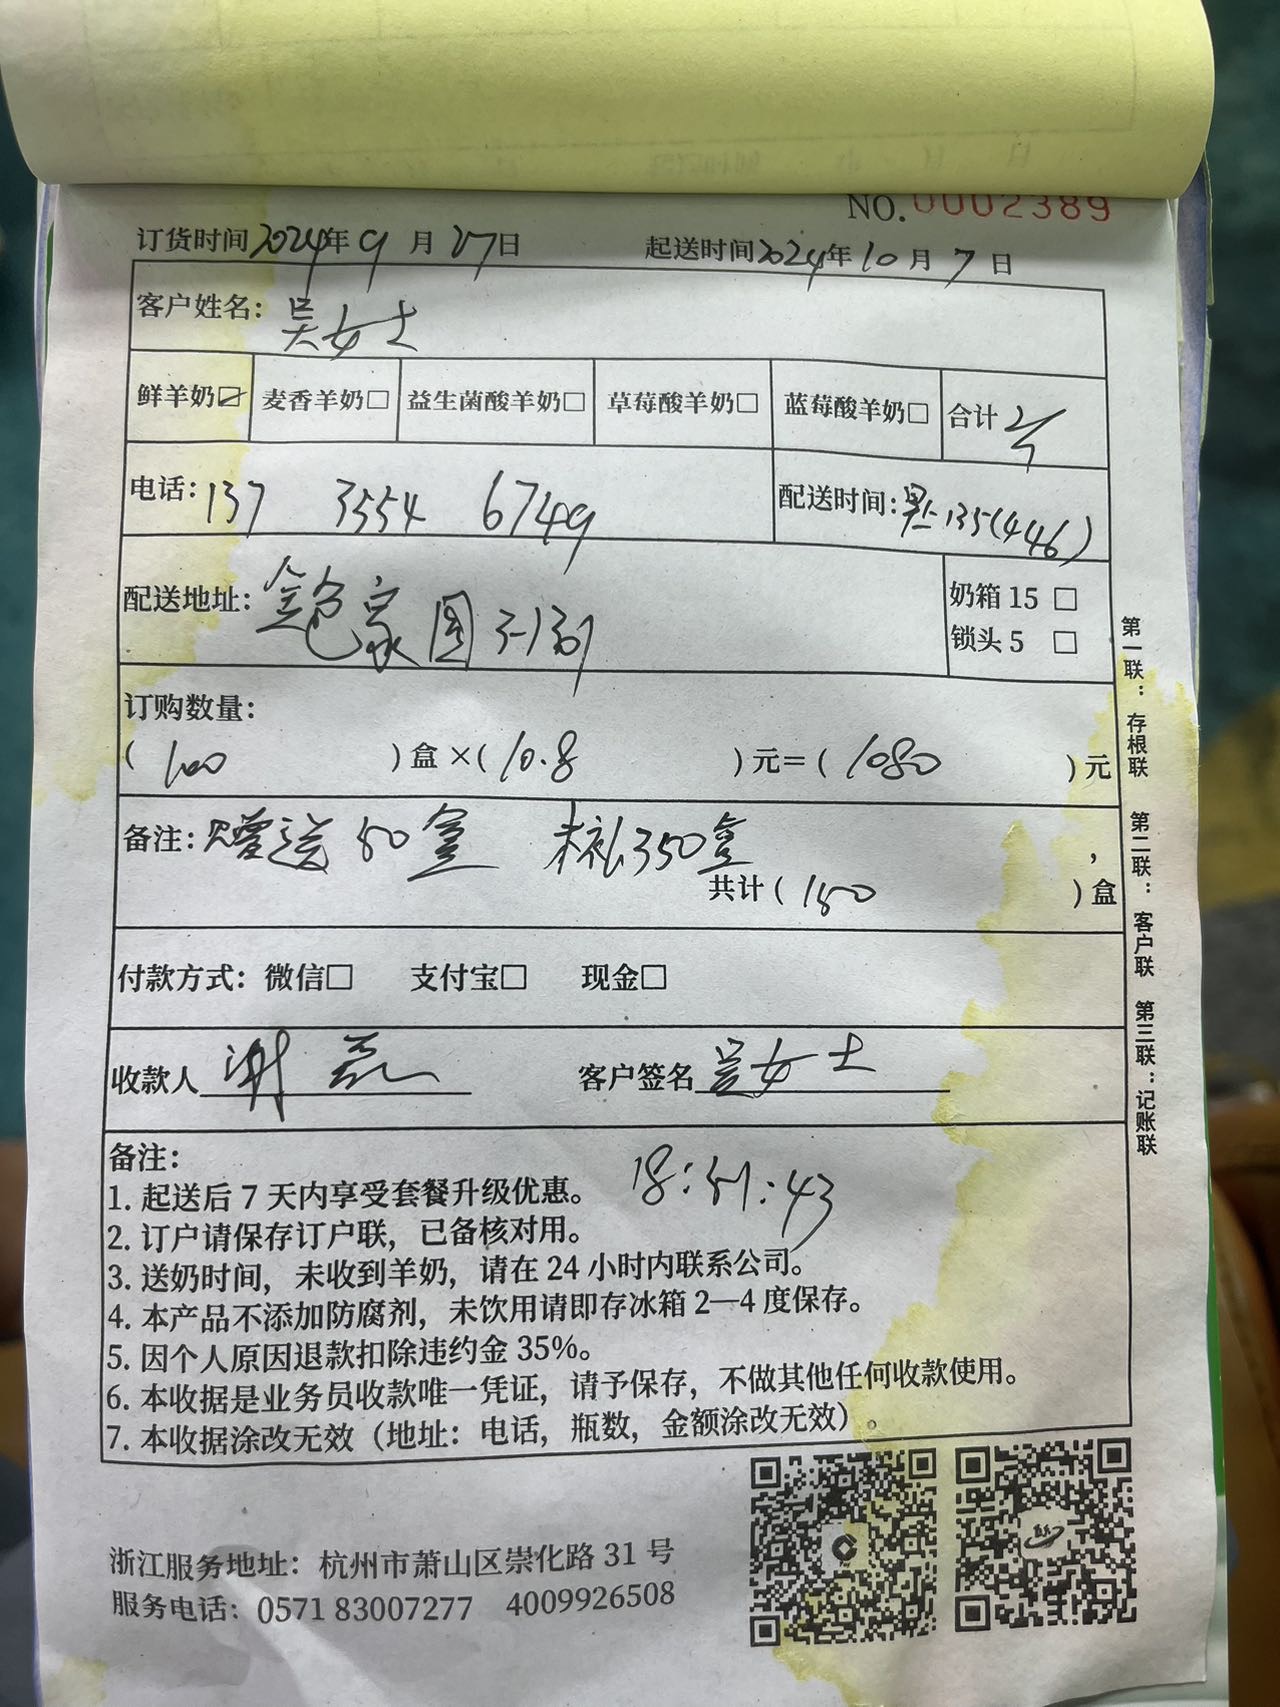 NO.0002389
订货时间2024年9月27日 起送时间2024年10月7日
客户姓名：吴女士
鲜羊奶☑ 麦香羊奶□ 益生菌酸羊奶□ 草莓酸羊奶□ 蓝莓酸羊奶□ 合计
电话：137 3554 6749 配送时间：星135(446)
配送地址：金色家园3-1301
奶箱 15 □
锁头 5 □
订购数量：
(100)盒×(10.8)元=(1080)元
备注：赠送50盒 未补350盒，
共计(150)盒
付款方式：微信□ 支付宝□ 现金□
收款人 谢磊 客户签名 吴女士
备注：
18:51:43
1. 起送后 7 天内享受套餐升级优惠。
2. 订户请保存订户联，已备核对用。
3. 送奶时间，未收到羊奶，请在 24 小时内联系公司。
4. 本产品不添加防腐剂，未饮用请即存冰箱 2—4 度保存。
5. 因个人原因退款扣除违约金 35%。
6. 本收据是业务员收款唯一凭证，请予保存，不做其他任何收款使用。
7. 本收据涂改无效（地址：电话，瓶数，金额涂改无效）。
第一联：存根联 第二联：客户联 第三联：记账联
浙江服务地址：杭州市萧山区崇化路 31 号
服务电话：0571 83007277 4009926508